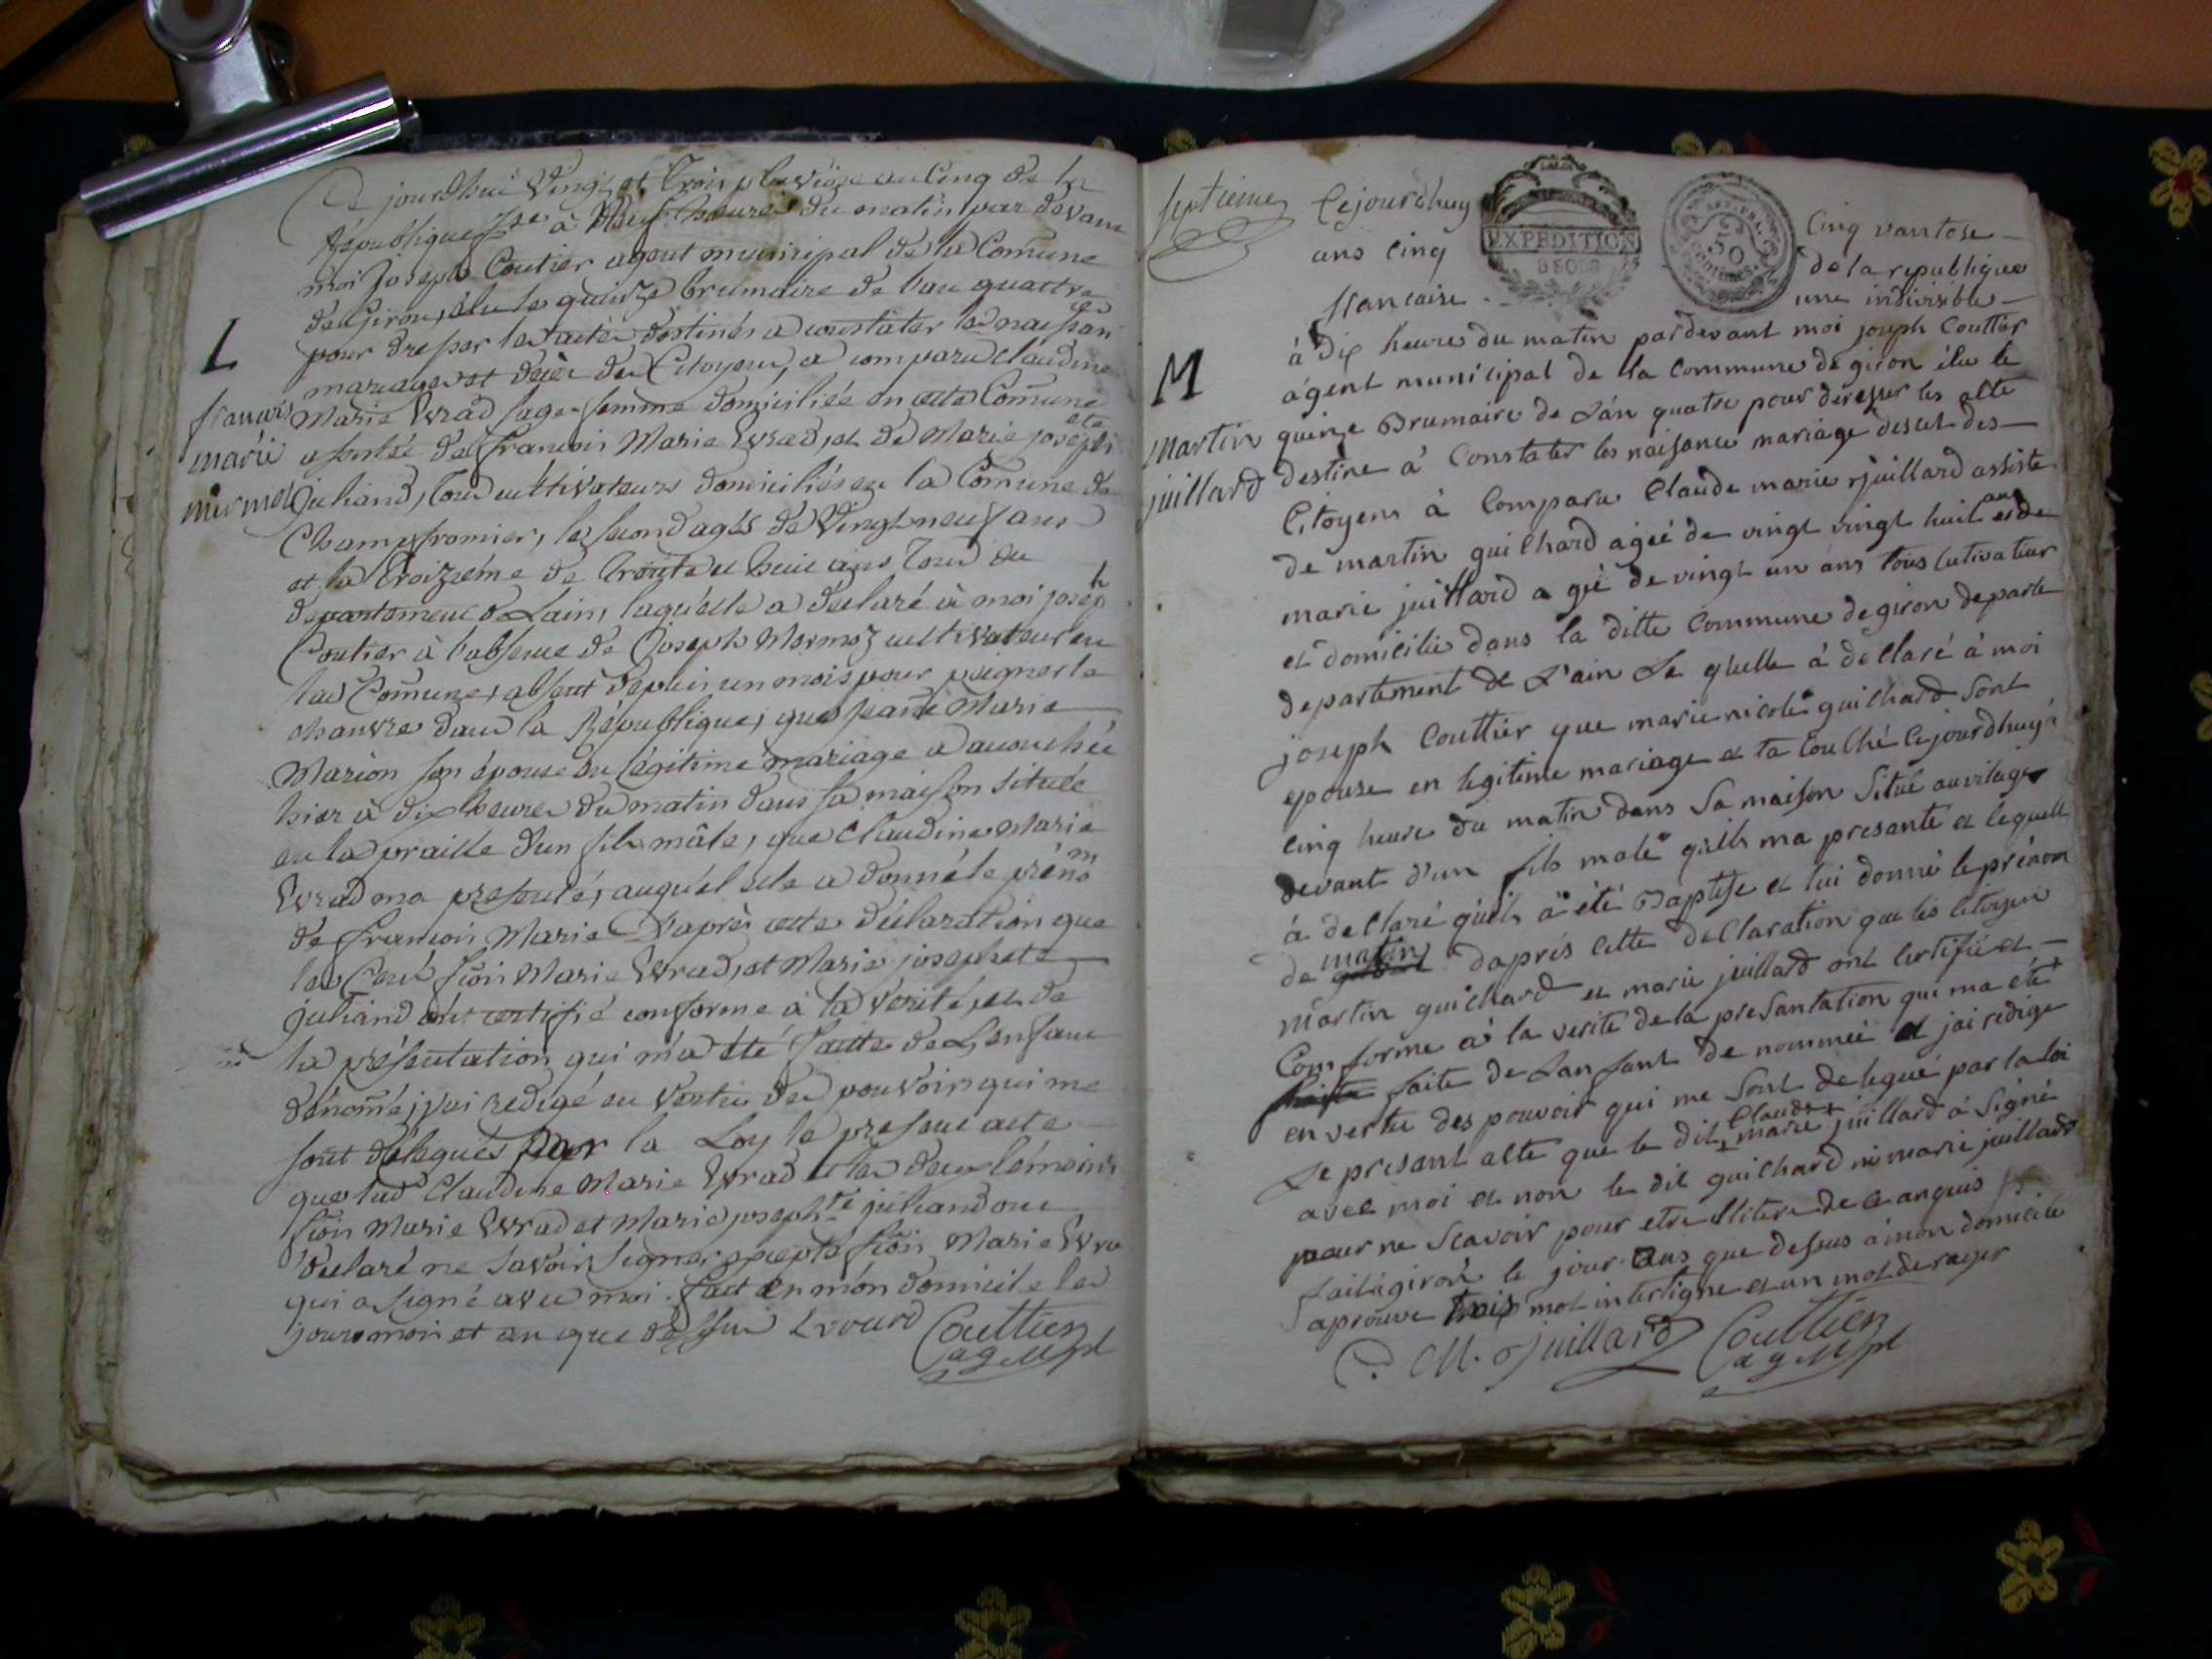 Ce jourdhui Vingt et trois pluviose an Cinq de la
République fse à Neuf heures du matin par devant
moi Joseph Coutier agent municipal de la Comune
de Giron, élu le quinze brumaire de l'an quattre
pour dresser les actes destinés a constater les naissances
mariages et décès des Citoyens, a comparu claudine
L
francois
marie
mermet
Marie Evrad sage-femme domiciliée en cette Comune
assistée de francois Marie Evrad, et de Marie josephete
juliand, tous cultivateurs domiciliés en la Comune de
Champfromier, le second agés de Vingt neuf ans
et la troizième de trente et huit ans tous du
departement de Lain, laquelle a déclaré à moi joseph
Coutier à l'absence de Joseph Mermoz cultivateur en
lad Comune, absent depuis un mois pour peigner le
chanvre dans la République, que jeane Marie
Marion son épouse en légitime mariage a accouchée
hier à dix heures du matin dans sa maison située
en la praille d'un fils mâle, que Claudine Marie
Evrad ma presenté, auquel elle a donné le prénom
de francois Marie D'après cette déclaration que
les Cens fcois Marie Evrad, et Marie josephete
juliand ont certifié conforme à la Verité, et de
la présentation qui m'a été faitte de L'enfant
dénomé, j'ai redigé en Vertu des pouvoirs qui me
sont délegués par la Loy le present acte
que lad Claudine Marie Evrad et les deux témoins
fcois Marie Evrad et Marie josephte juliand ont
déclaré ne savoir signer, excepté fcois Marie Evra
qui a signé avec moi. fait en mon domicile les
jours mois et an que dessus Evvurd Couttier
ag Mpl
septieme
Cejourdhuy
Cinq vantose
ans cinq
de la republique
francaise
une indivisible
EXPEDITION
8 SOLS
50
Centimes
M
martin
juillard
à dix heure du matin pardevant moi joseph Couttier
agent municipal de la Commune de giron élu le
quinze Brumaire de L'an quatre pour deresser les alte
destine a Constater les naisance mariage deset des
Citoyens à Comparu Claude marie juillard assiste
de martin guilhard agée de vingt vingt huit ans et de
marie juillard a gé de vingt un ans tous cutivateur
et domicilie dans la ditte Commune de giron departe
departement de L'ain Le qhelle à dellaré à moi
joseph Couttier que marie nicole guilhard Sont
epouse en legitime mariage et ta couché cejourdhuy à
cing heure du matin dans Sa maison Situé auvilage
devant d'un fils male qu'ils ma presante et lequell
à dellaré quils à été Baptise et lui donné le prénom
de martin dapres cette dellaration que les Citoyen
martin guichard et marie juillard ont Certifié et
Comforme à la verite de la presantation qui ma été
faite de Lanfant de nommée et jai redige
en vertu des pouvoir qui me Sont delegué par la loi
Le present alte que le dit Claude marie juillard à Signé
avec moi et non le dit guilhard ni marie juillard
pour ne Scavoir pour etre llitere de ce anquis
fait à giron le jour ans que desus à mon domicile
aprouve trois mot interligne et un mot de rayer
C. M. Juillard Couttier
ag Mpl